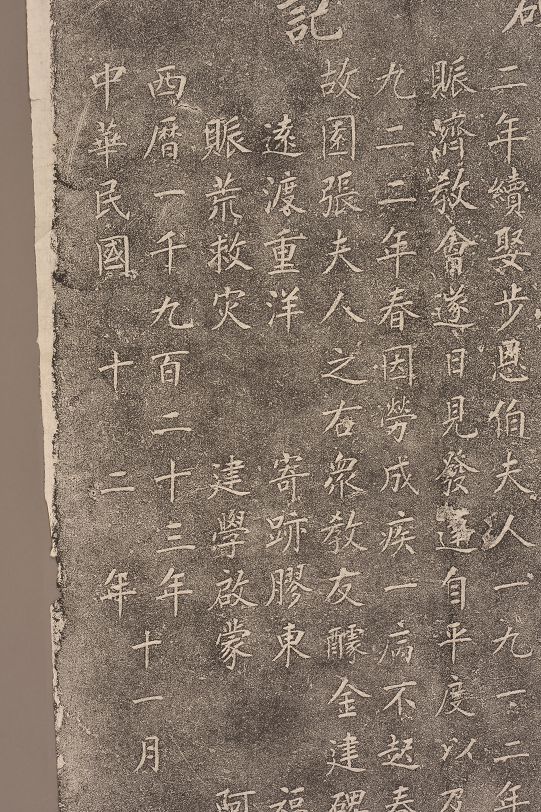 記
二年續娶步恩伯夫人一九一二年
賑濟教會遂日見發達自平度以
九二二年春因勞成疾一病不起
故園張夫人之右眾教友醵金建碑
遠渡重洋 寄跡膠東 福
賑荒救灾 建學啟蒙 阿
西曆一千九百二十三年
中華民國十二年
十一月